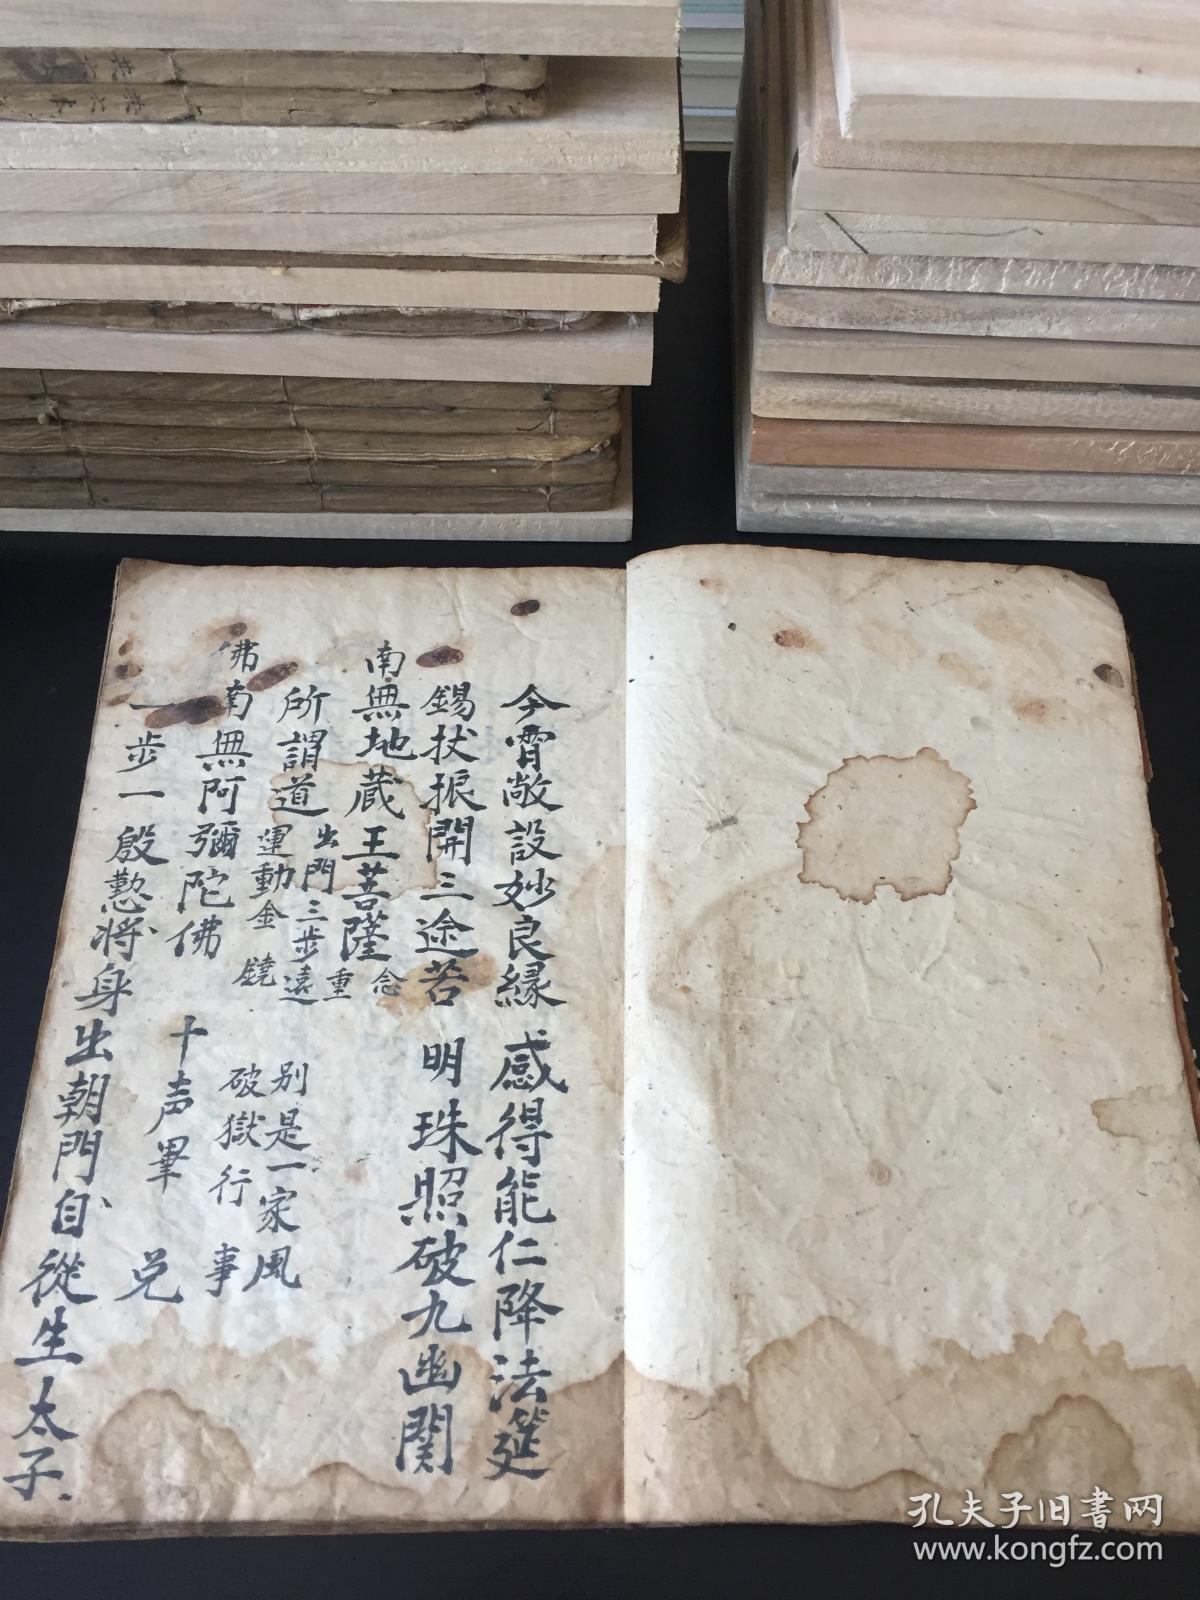 今霄敞設妙良縁 感得能仁降法筵
錫杖振開三途苦 明珠照破九幽関
南無地蔵王菩薩 念
所謂道 出門三步遠重
運動金鐃
別是一家風
破獄行事
佛南無阿彌陀佛 十声畢 兑
一步一殷懃將身出朝門自從生太子
孔夫子旧书网
www.kongfz.com